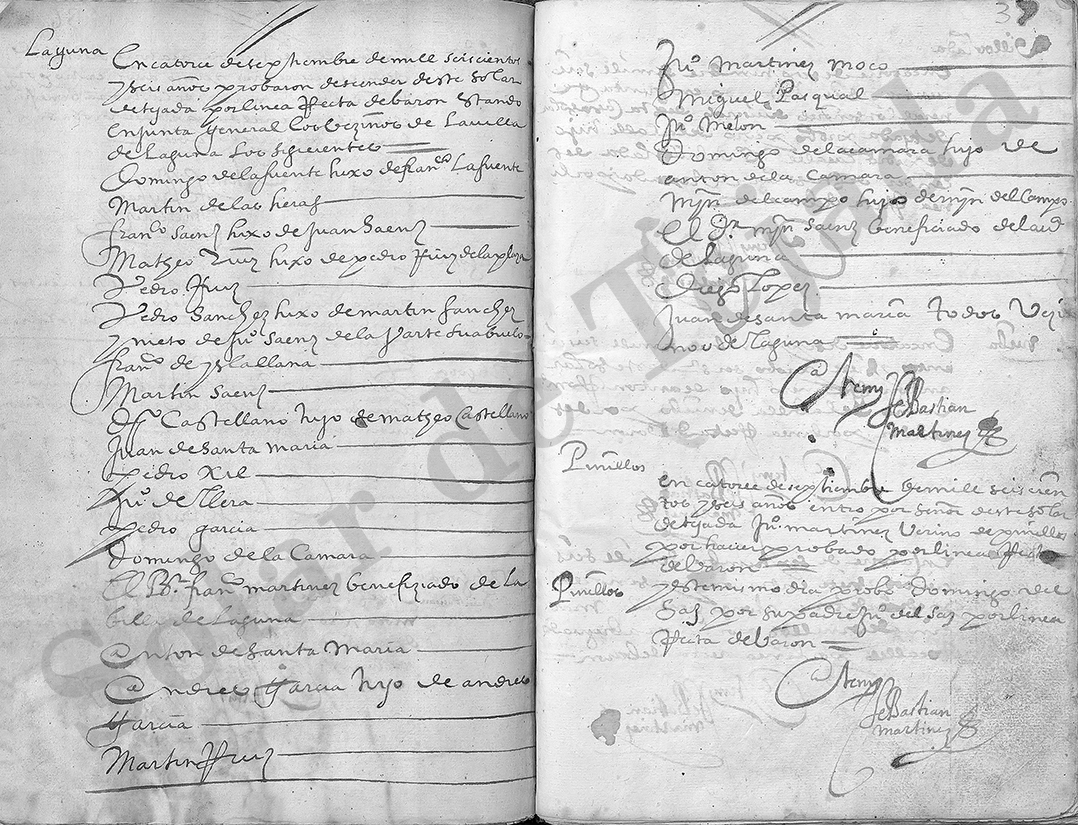 Laguna
En catorce de septiembre de mill seiscientos
y seis años probaron descender deste solar
de tejada por linea Recta de baron estando
en junta general los vezinos de la villa
de Laguna los siguientes
Domingo de la fuente hixo de franco Lafuente
Martin de las heras
franco Saenz hixo de Juan Saenz
Matheo Ruiz hixo de pedro Ruiz de la plaza
Pedro Ruiz
Pedro Sanchez hixo de martin sanchez
y nieto de Juo Saenz de la parte su abuelo
franco de yslallana
Martin Saenz
Castellano hijo de matheo Castellano
Juan de Santa Maria
Pedro Xil
Juo de Llera
Pedro garcia
Domingo de la Camara
El franco martinez benefiziado de la
billa de Laguna
Anton de Santa Maria
Andres Garcia hijo de andres
Garcia
Martin Ruiz
3
Juo Martinez moco
Miguel Pasqual
Juo Melon
Domingo de la camara hijo de
anton de la Camara
Mrn del campo hijo de mrn del Campo
El mrn Saenz beneficiado de la
de Laguna
Diego Lopez
Juan de santa maria todos Vezi
nos de Laguna
Ante my
Sebastian
martinez
Pinillos
en catorce de septiembre de mill seiscien
tos y seis años entro por señor deste solar
de tejada Juo martinez Vezino de pinillos
por hacer probado por linea Recta
de baron
Pinillos
y este mismo dia probo Domingo del
Saz por su padre Juo del Saz por linea
Recta de baron
Ante my
Sebastian
martinez
Solar de Tejada